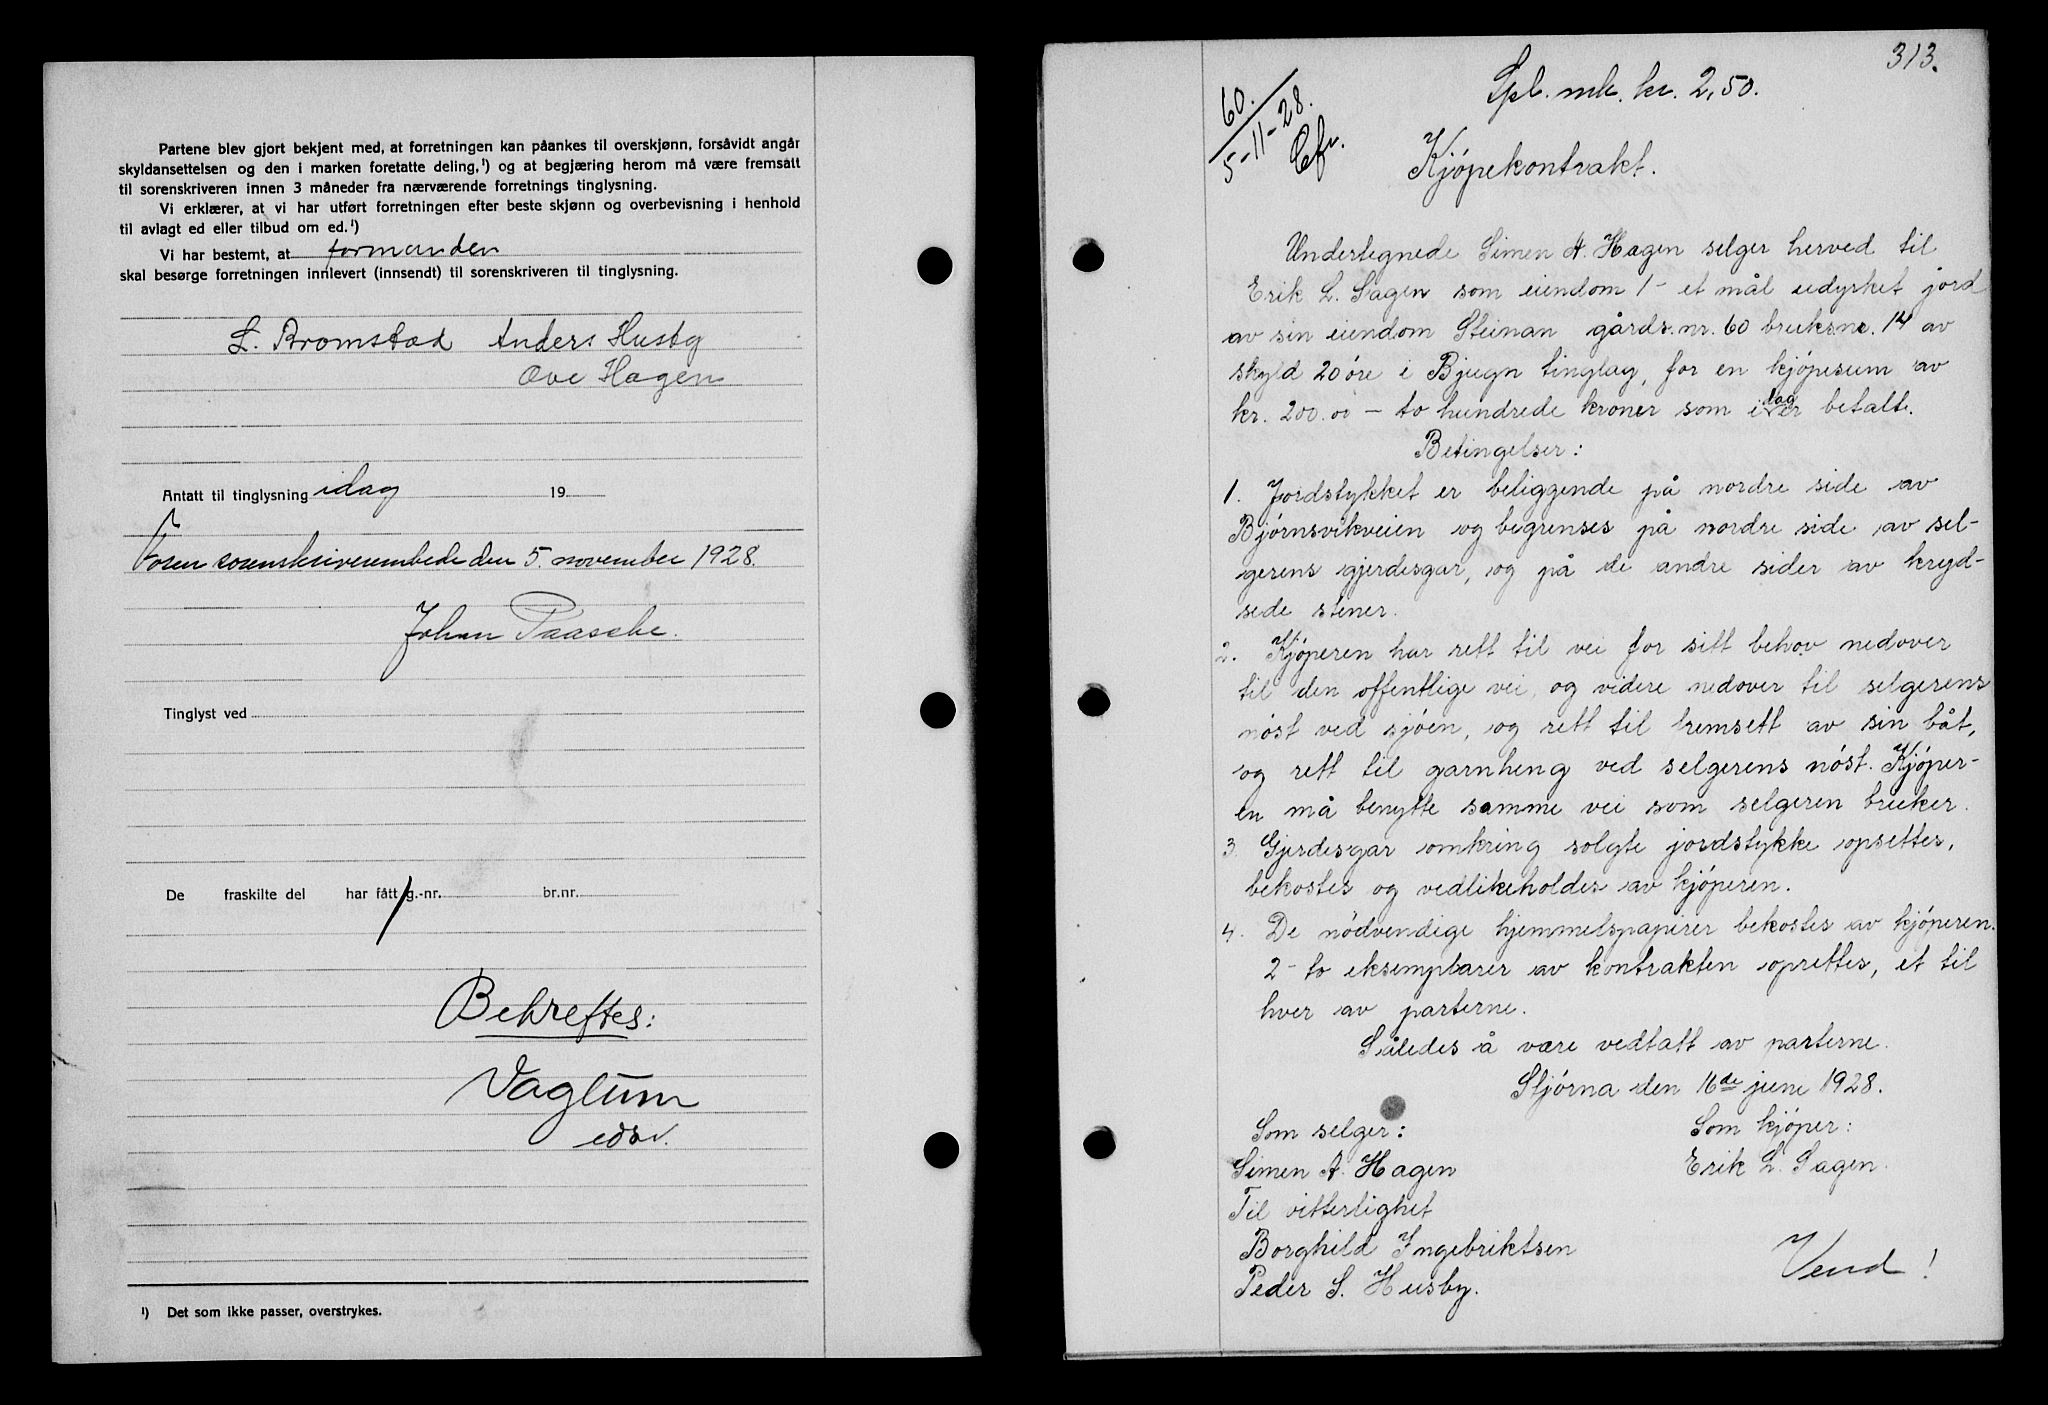 Partene blev gjort bekjent med, at forretningen kan påankes til overskjønn, forsåvidt angår
skyldansettelsen og den i marken foretatte deling,¹) og at begjæring herom må være fremsatt
til sorenskriveren innen 3 måneder fra nærværende forretnings tinglysning.
Vi erklærer, at vi har utført forretningen efter beste skjønn og overbevisning i henhold
til avlagt ed eller tilbud om ed.¹)
Vi har bestemt, at formanden
skal besørge forretningen innlevert (innsendt) til sorenskriveren til tinglysning.
L. Bromstad Anders Husby
Ove Hagen
Antatt til tinglysning idag 19
Fosen sorenskriverembede den 5. november 1928.
Johan Paasche.
Tinglyst ved
De fraskilte del har fått g.-nr. br.nr.
Bekreftes:
Vaglum
edsv.
¹) Det som ikke passer, overstrykes.
313.
60.
5-11-28.
Spl. mk. kr. 2,50.
Kjöpekontrakt.
Undertegnede Simen A. Hagen selger herved til
Erik L. Sagen som eiendom 1 - et mål udyrket jord
av sin eiendom Steinan gårds.nr. 60 bruksnr. 14 av
skyld 20 öre i Bjugn tinglag, for en kjöpesum av
kr. 200.00 - to hundrede kroner som idag er betalt.
Betingelser:
1. Jordstykket er beliggende på nordre side av
Bjørnsvikveien og begrenses på nordre side av sel-
gerens gjerdesgar, og på de andre sider av kryd-
sede stener.
2. Kjöperen har rett til vei for sitt behov nedover
til den offentlige vei, og videre nedover til selgerens
nöst ved sjöen, og rett til fremsett av sin båt,
og rett til garnheng ved selgerens nöst. Kjöper-
en må benytte samme vei som selgeren bruker.
3. Gjerdesgar omkring solgte jordstykke opsettes,
bekostes og vedlikeholdes av kjöperen.
4. De nödvendige hjemmelspapirer bekostes av kjöperen.
2 - to eksemplarer av kontrakten oprettes, et til
hver av parterne.
Således å være vedtatt av parterne.
Stjörna den 16de june 1928.
Som selger: Som kjöper:
Simen A. Hagen Erik L. Sagen.
Til vitterlighet
Borghild Ingebriktsen
Peder S. Husby.
Vend!